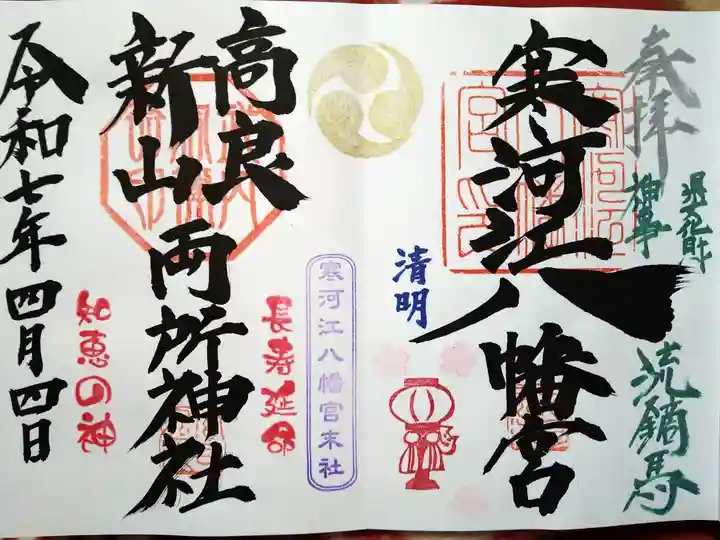 奉拝
県文化財
神事
流鏑馬
寒河江八幡宮
清明
寒河江八幡宮末社
長寿延命
高良
新山両所神社
知恵の神
令和七年四月四日